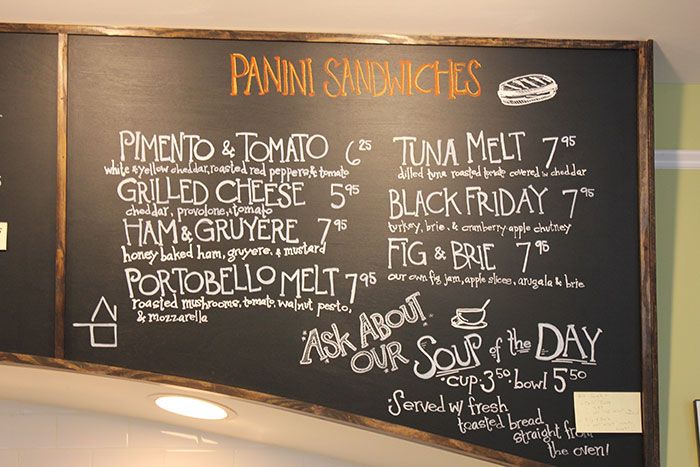 PANINI SANDWICHES
PIMENTO & TOMATO 6 25
white & yellow cheddar, roasted red peppers, & tomato
GRILLED CHEESE 5 95
cheddar, provolone, tomato
HAM & GRUYERE 7 95
honey baked ham, gruyere, & mustard
PORTOBELLO MELT 7 95
roasted mushrooms, tomato, walnut pesto,
& mozzarella
TUNA MELT 7 95
dilled tuna roasted tomato covered w cheddar
BLACK FRIDAY 7 95
turkey, brie, & cranberry-apple chutney
FIG & BRIE 7 95
our own fig jam, apple slices, arugala & brie
ASK ABOUT
OUR SOUP of the DAY
cup 3 50 bowl 5 50
Served w/ fresh
toasted bread
straight from
the oven!